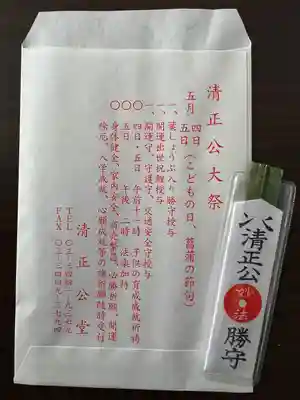 清正公大祭
五月 四日
五日(こどもの日、菖蒲の節句)
一、葉しょうぶ入り勝守授与
一、開運出世祝鯉授与
一、開運守、守護守、交通安全守授与
〇四日・五日 午前十一時 子供の育成成就祈祷
〇五日 午後 二時 法楽加持
〇身体健全、家内安全、
必勝祈願、開運
除厄、入学成就、心願成就等の諸祈願随時受付
清正公堂
TEL
FAX
清正公
妙法
勝守